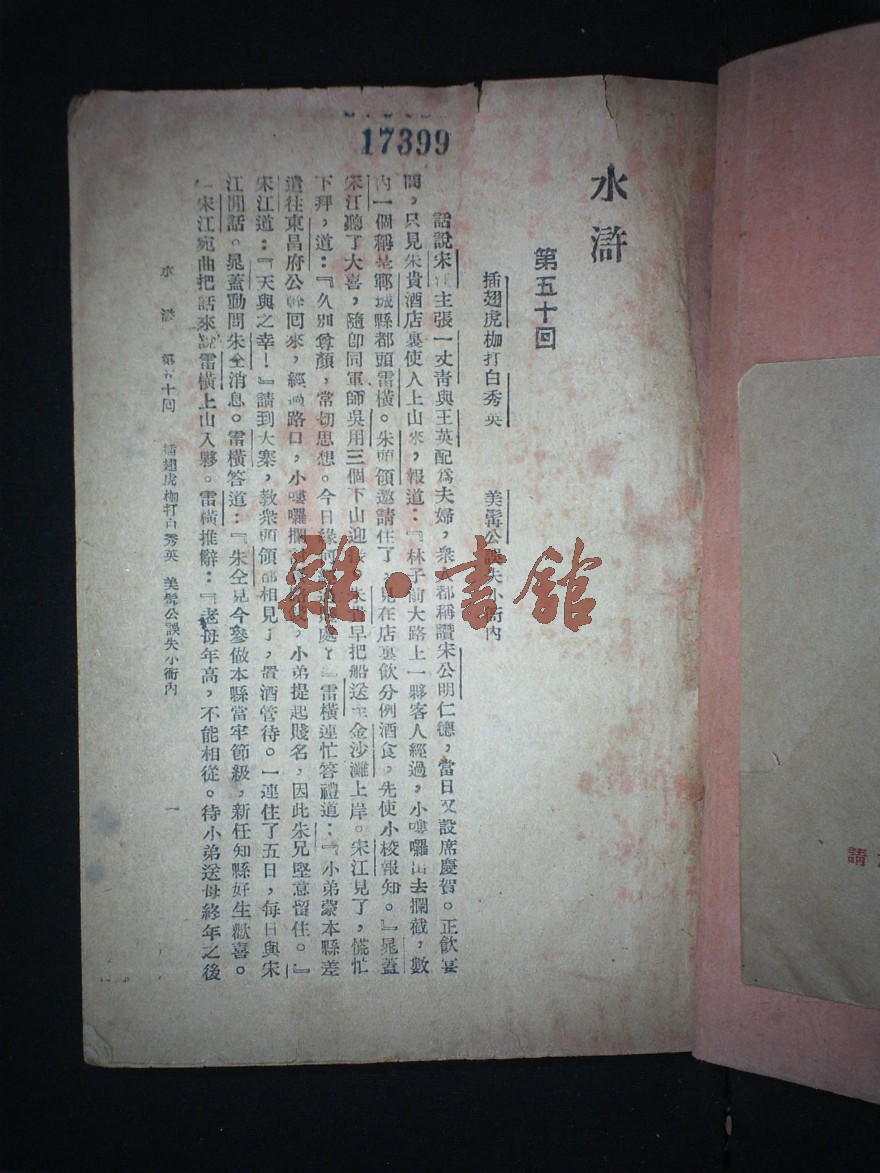 17399
水滸
第五十回
插翅虎枷打白秀英 美髯公誤失小衙內
話說宋江主張一丈青與王英配爲夫婦，衆人都稱讚宋公明仁德，當日又設席慶賀。正飲宴
間，只見朱貴酒店裏使人上山來，報道：『林子前大路上一夥客人經過，小嘍囉出去攔截，數
內一個稱是鄆城縣都頭雷橫。朱頭領邀請住了，見在店裏飲分例酒食，先使小校報知。』晁蓋
宋江聽了大喜，隨卽同軍師吳用三個下山迎接。朱貴早把船送至金沙灘上岸。宋江見了，慌忙
下拜，道：『久別尊顏，常切思想。今日緣何經過賤處？』雷橫連忙答禮道：『小弟蒙本縣差
遣往東昌府公幹回來，經過路口，小嘍囉攔討，小弟提起賤名，因此朱兄堅意留住。』
宋江道：『天與之幸！』請到大寨，敎衆頭領都相見了，置酒管待。一連住了五日，每日與宋
江閒話。晁蓋動問朱仝消息。雷橫答道：『朱仝見今參做本縣當牢節級，新任知縣好生歡喜。
』宋江宛曲把話來說雷橫上山入夥。雷橫推辭：『老母年高，不能相從。待小弟送母終年之後
水滸 第五十回 插翅虎枷打白秀英 美髯公誤失小衙內 一
雜·書館
請